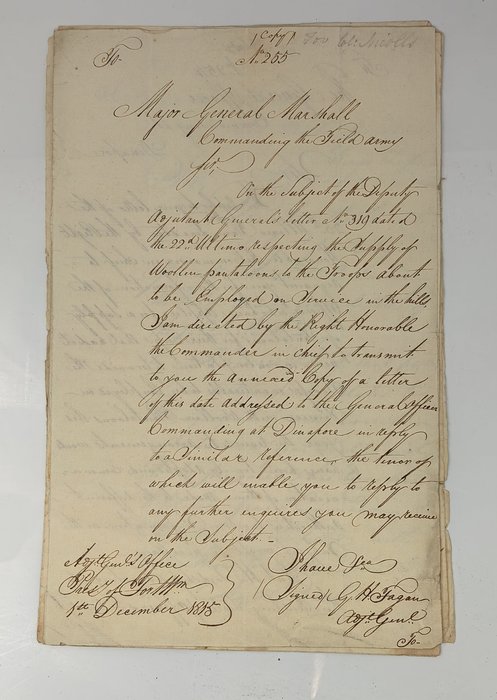 (Copy) For Col: Nicolls
To No 255
Major General Marshall
Commanding the Field army
Sir,
On the Subject of the Deputy
Adjutant Generals letter No 319 dated
the 22d Ultimo respecting the Supply of
Woollen pantaloons to the Troops about
to be Employed on Service in the hills,
I am directed by the Right Honorable
the Commander in Chief to transmit
to you the Annexed Copy of a letter
of this date addressed to the General Officer
Commanding at Dinapore in reply
to a Similar reference, the tenor of
which will enable you to reply to
any further enquires you may receive
on the Subject.-
Adjt. Genl's Office
Presy of Fort Wm
1st December 1815
I have &ca
(Signed) G. H. Fagan
Adjt. Genl.
To-